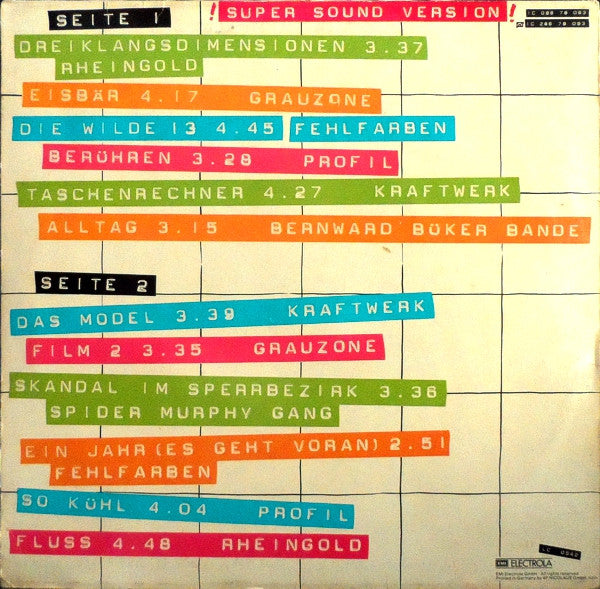 SEITE 1 ! SUPER SOUND VERSION !
DREIKLANGSDIMENSIONEN 3.37
RHEINGOLD
EISBÄR 4.17 GRAUZONE
DIE WILDE 13 4.45 FEHLFARBEN
BERÜHREN 3.28 PROFIL
TASCHENRECHNER 4.27 KRAFTWERK
ALLTAG 3.15 BERNWARD BÖKER BANDE
SEITE 2
DAS MODEL 3.39 KRAFTWERK
FILM 2 3.35 GRAUZONE
SKANDAL IM SPERRBEZIRK 3.36
SPIDER MURPHY GANG
EIN JAHR (ES GEHT VORAN) 2.51
FEHLFARBEN
SO KÜHL 4.04 PROFIL
FLUSS 4.48 RHEINGOLD
LC 0542
EMI ELECTROLA
EMI Electrola GmbH All rights reserved
Printed in Germany by